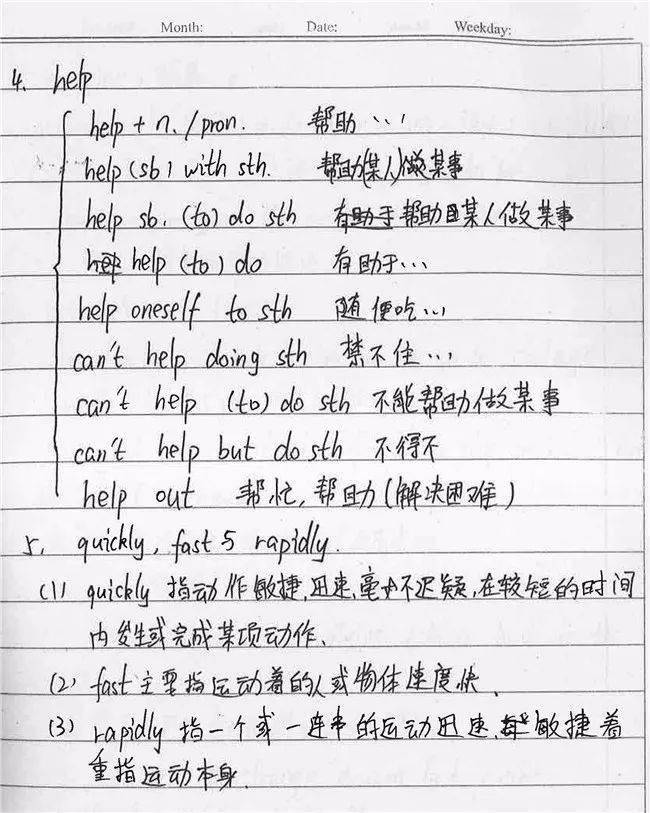 Month: Date: Weekday:
4. help
help + n. / pron. 帮助 …
help (sb) with sth. 帮助(某人)做某事
help sb. (to) do sth 帮助某人做某事
help (to) do 有助于…
help oneself to sth 随便吃…
can't help doing sth 禁不住…
can't help (to) do sth 不能帮助做某事
can't help but do sth 不得不
help out 帮忙, 帮助 (解决困难)
5. quickly, fast 与 rapidly.
(1) quickly 指动作敏捷、迅速、毫不迟疑,在较短的时间
内发生或完成某项动作、
(2) fast 主要指运动着的人或物体速度快、
(3) rapidly 指一个或一连串的运动迅速、敏捷着
重指运动本身、